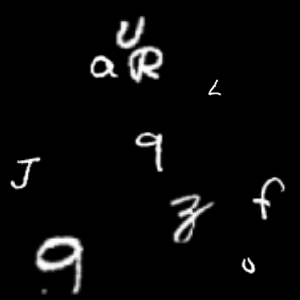 U
a R
L
9
J
z f
9 u